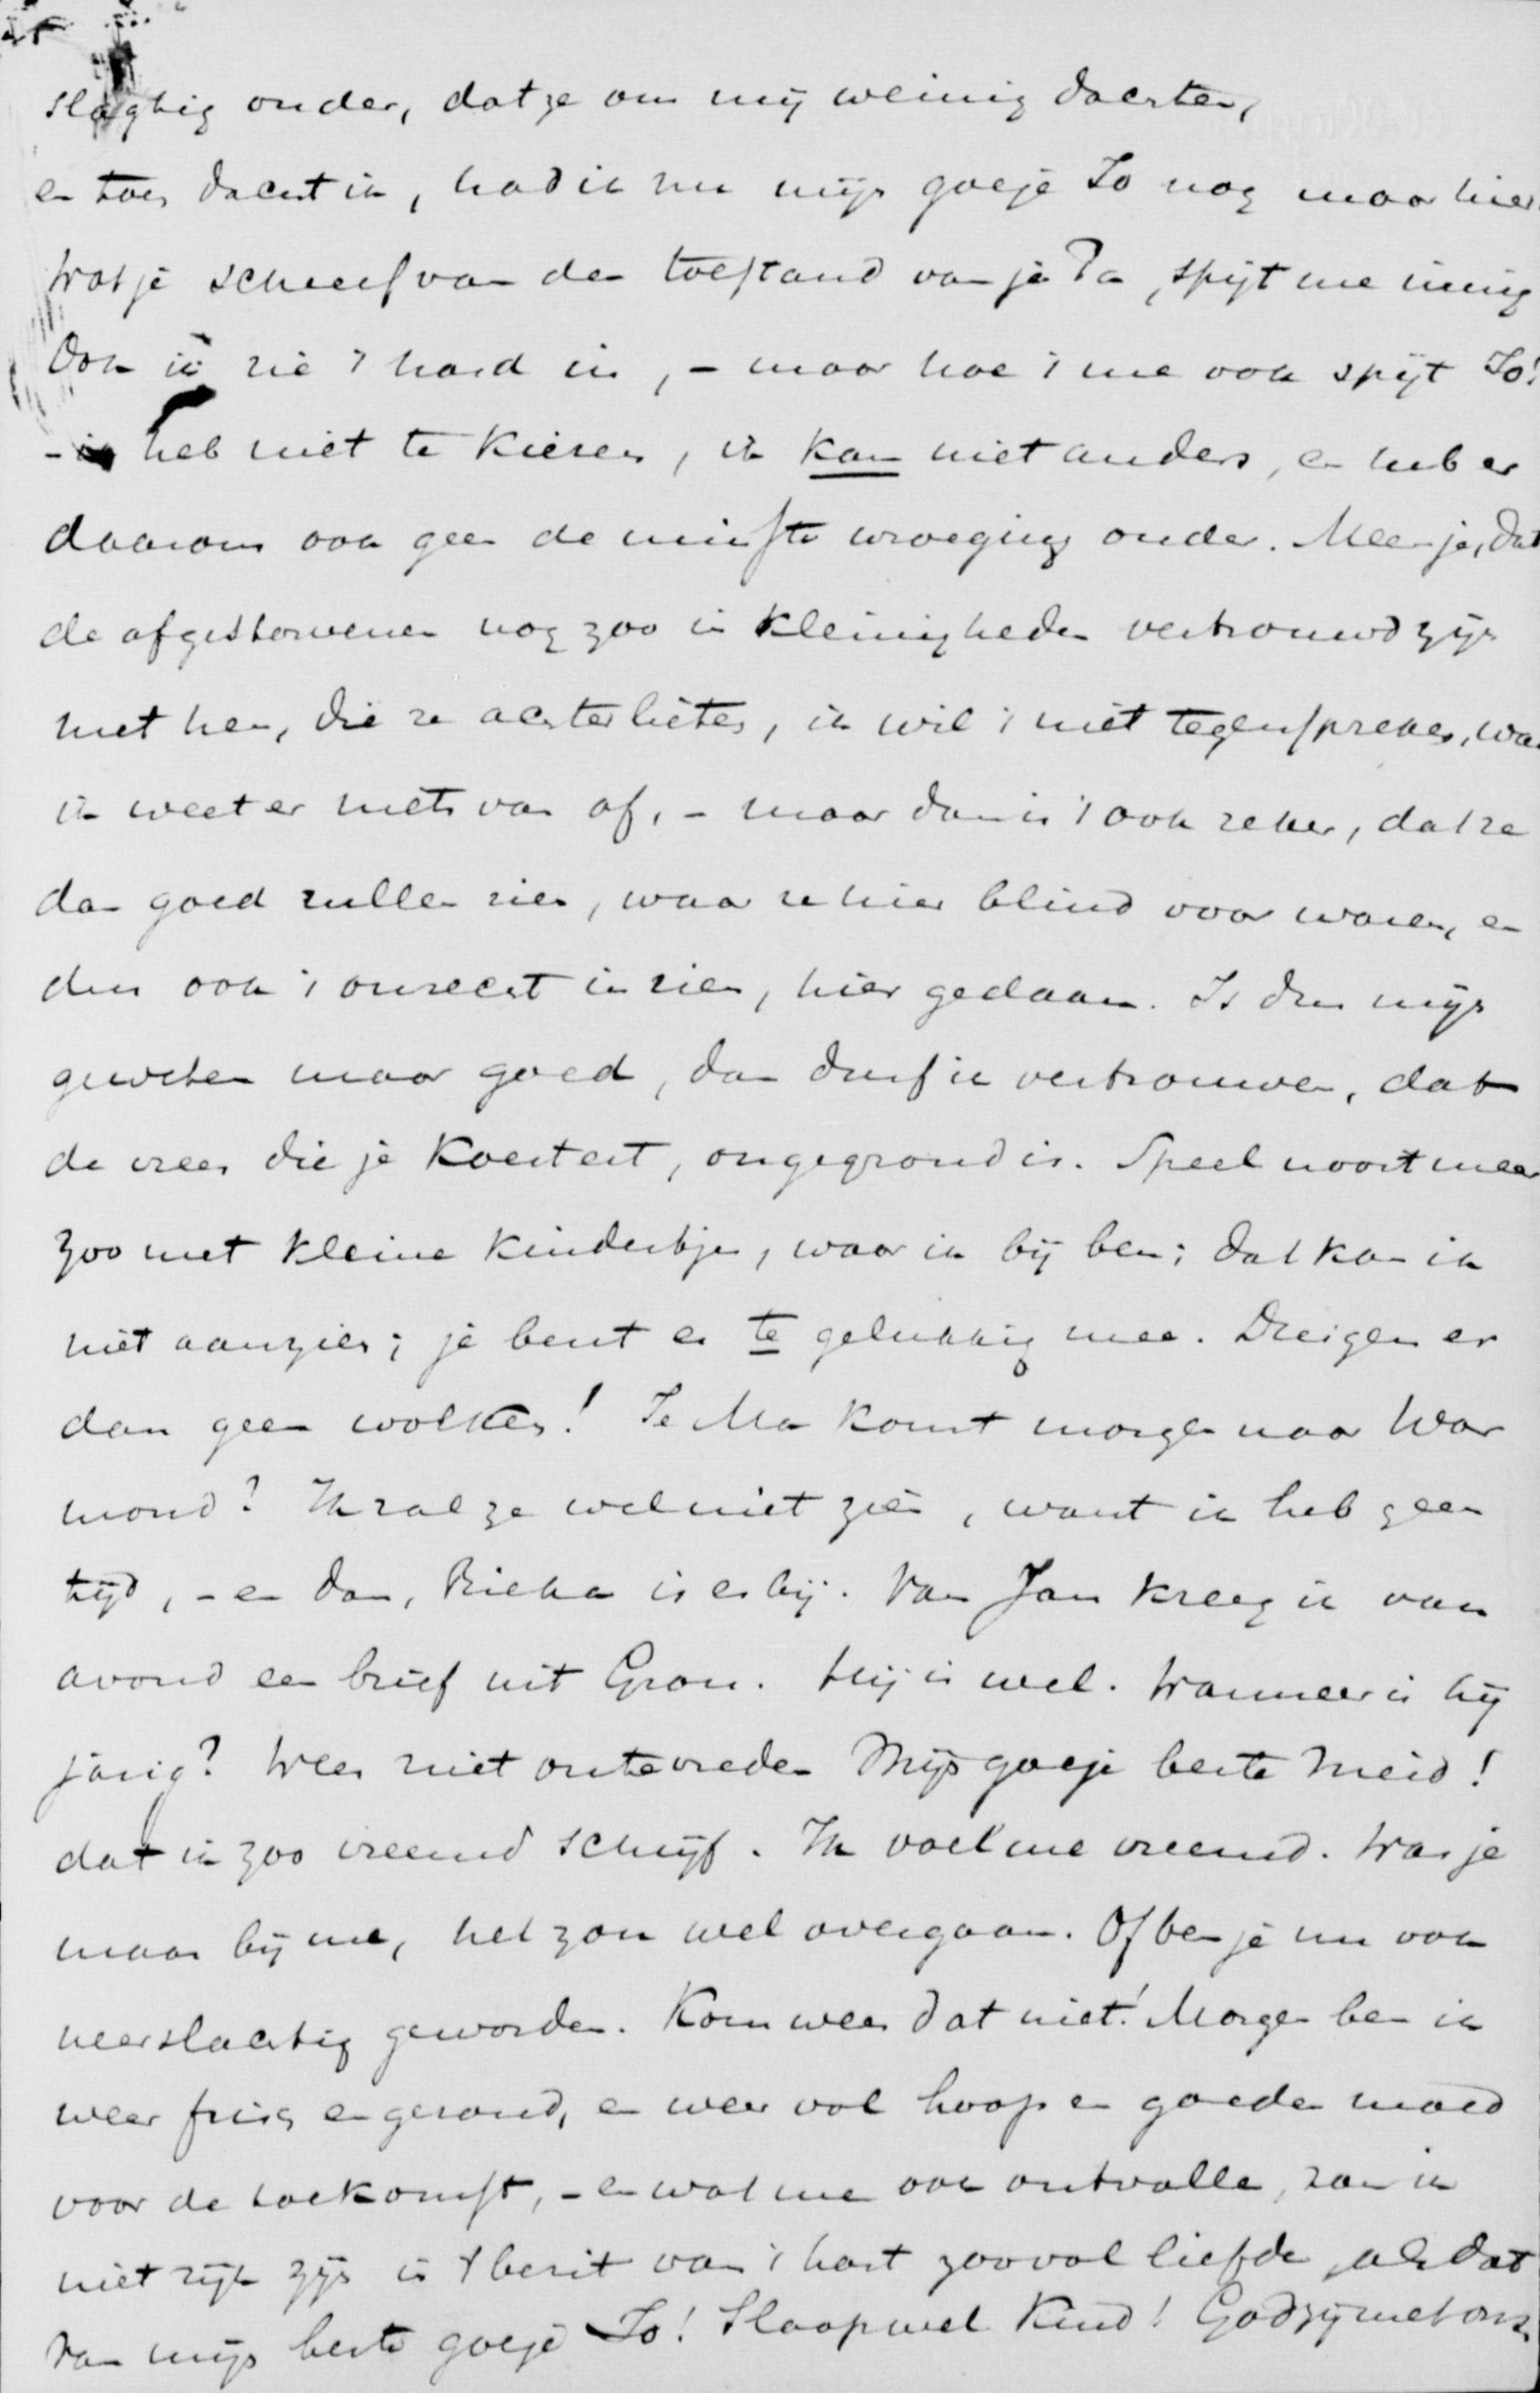 slagtig onder, dat ze om mij weinig dachten,
en toen dacht ik, had ik nu mijn goeje Jo nog maar hier
Wat je schreef van den toestand van je Pa, spijt me innig
Ook ik zie 't hard in, - maar hoe 't me ook spijt Jo!
- ik heb niet te kiezen, ik kan niet anders, en heb er
daarom ook geen de minste wroeging onder. Meen je, dat
de afgestorvenen nog zoo in kleinigheden vertrouwd zijn
met hen, die ze achterlieten, ik wil 't niet tegenspreken, wa
ik weet er niets van af, - maar dan is 't ook zeker, dat ze
dan goed zullen zien, waar ze hier blind voor waren, en
dus ook 't onrecht inzien, hier gedaan. Is dus mijn
geweten maar goed, dan durf ik vertrouwen, dat
de vrees die je koestert, ongegrond is. Speel nooit meer
zoo met kleine kindertjes, waar ik bij ben; dat kan ik
niet aanzien; je bent er te gelukkig mee. Dreigen er
dan geen wolken! Je Ma komt morgen naar War
mond? Ik zal ze wel niet zien, want ik heb geen
tijd, - en dan, Rieka is er bij. Van Jan kreeg ik van
avond een brief uit Gron. Hij is wel. Wanneer is hij
jarig? Wees niet ontevreden Mijn goeje beste Meid!
dat ik zoo vreemd schrijf. Ik voel me vreemd. Was je
maar bij me, het zou wel overgaan. Of ben je nu ook
neerslachtig geworden. Kom wees dat niet! Morgen ben ik
weer frisch en gezond, en weer vol hoop en goeden moed
voor de toekomst, - en wat me ook ontvalle, zou ik
niet rijk zijn in 't bezit van 't hart zoo vol liefde, als dat
Van mijn beste goeje Jo! Slaap wel Kind! God zij met ons.